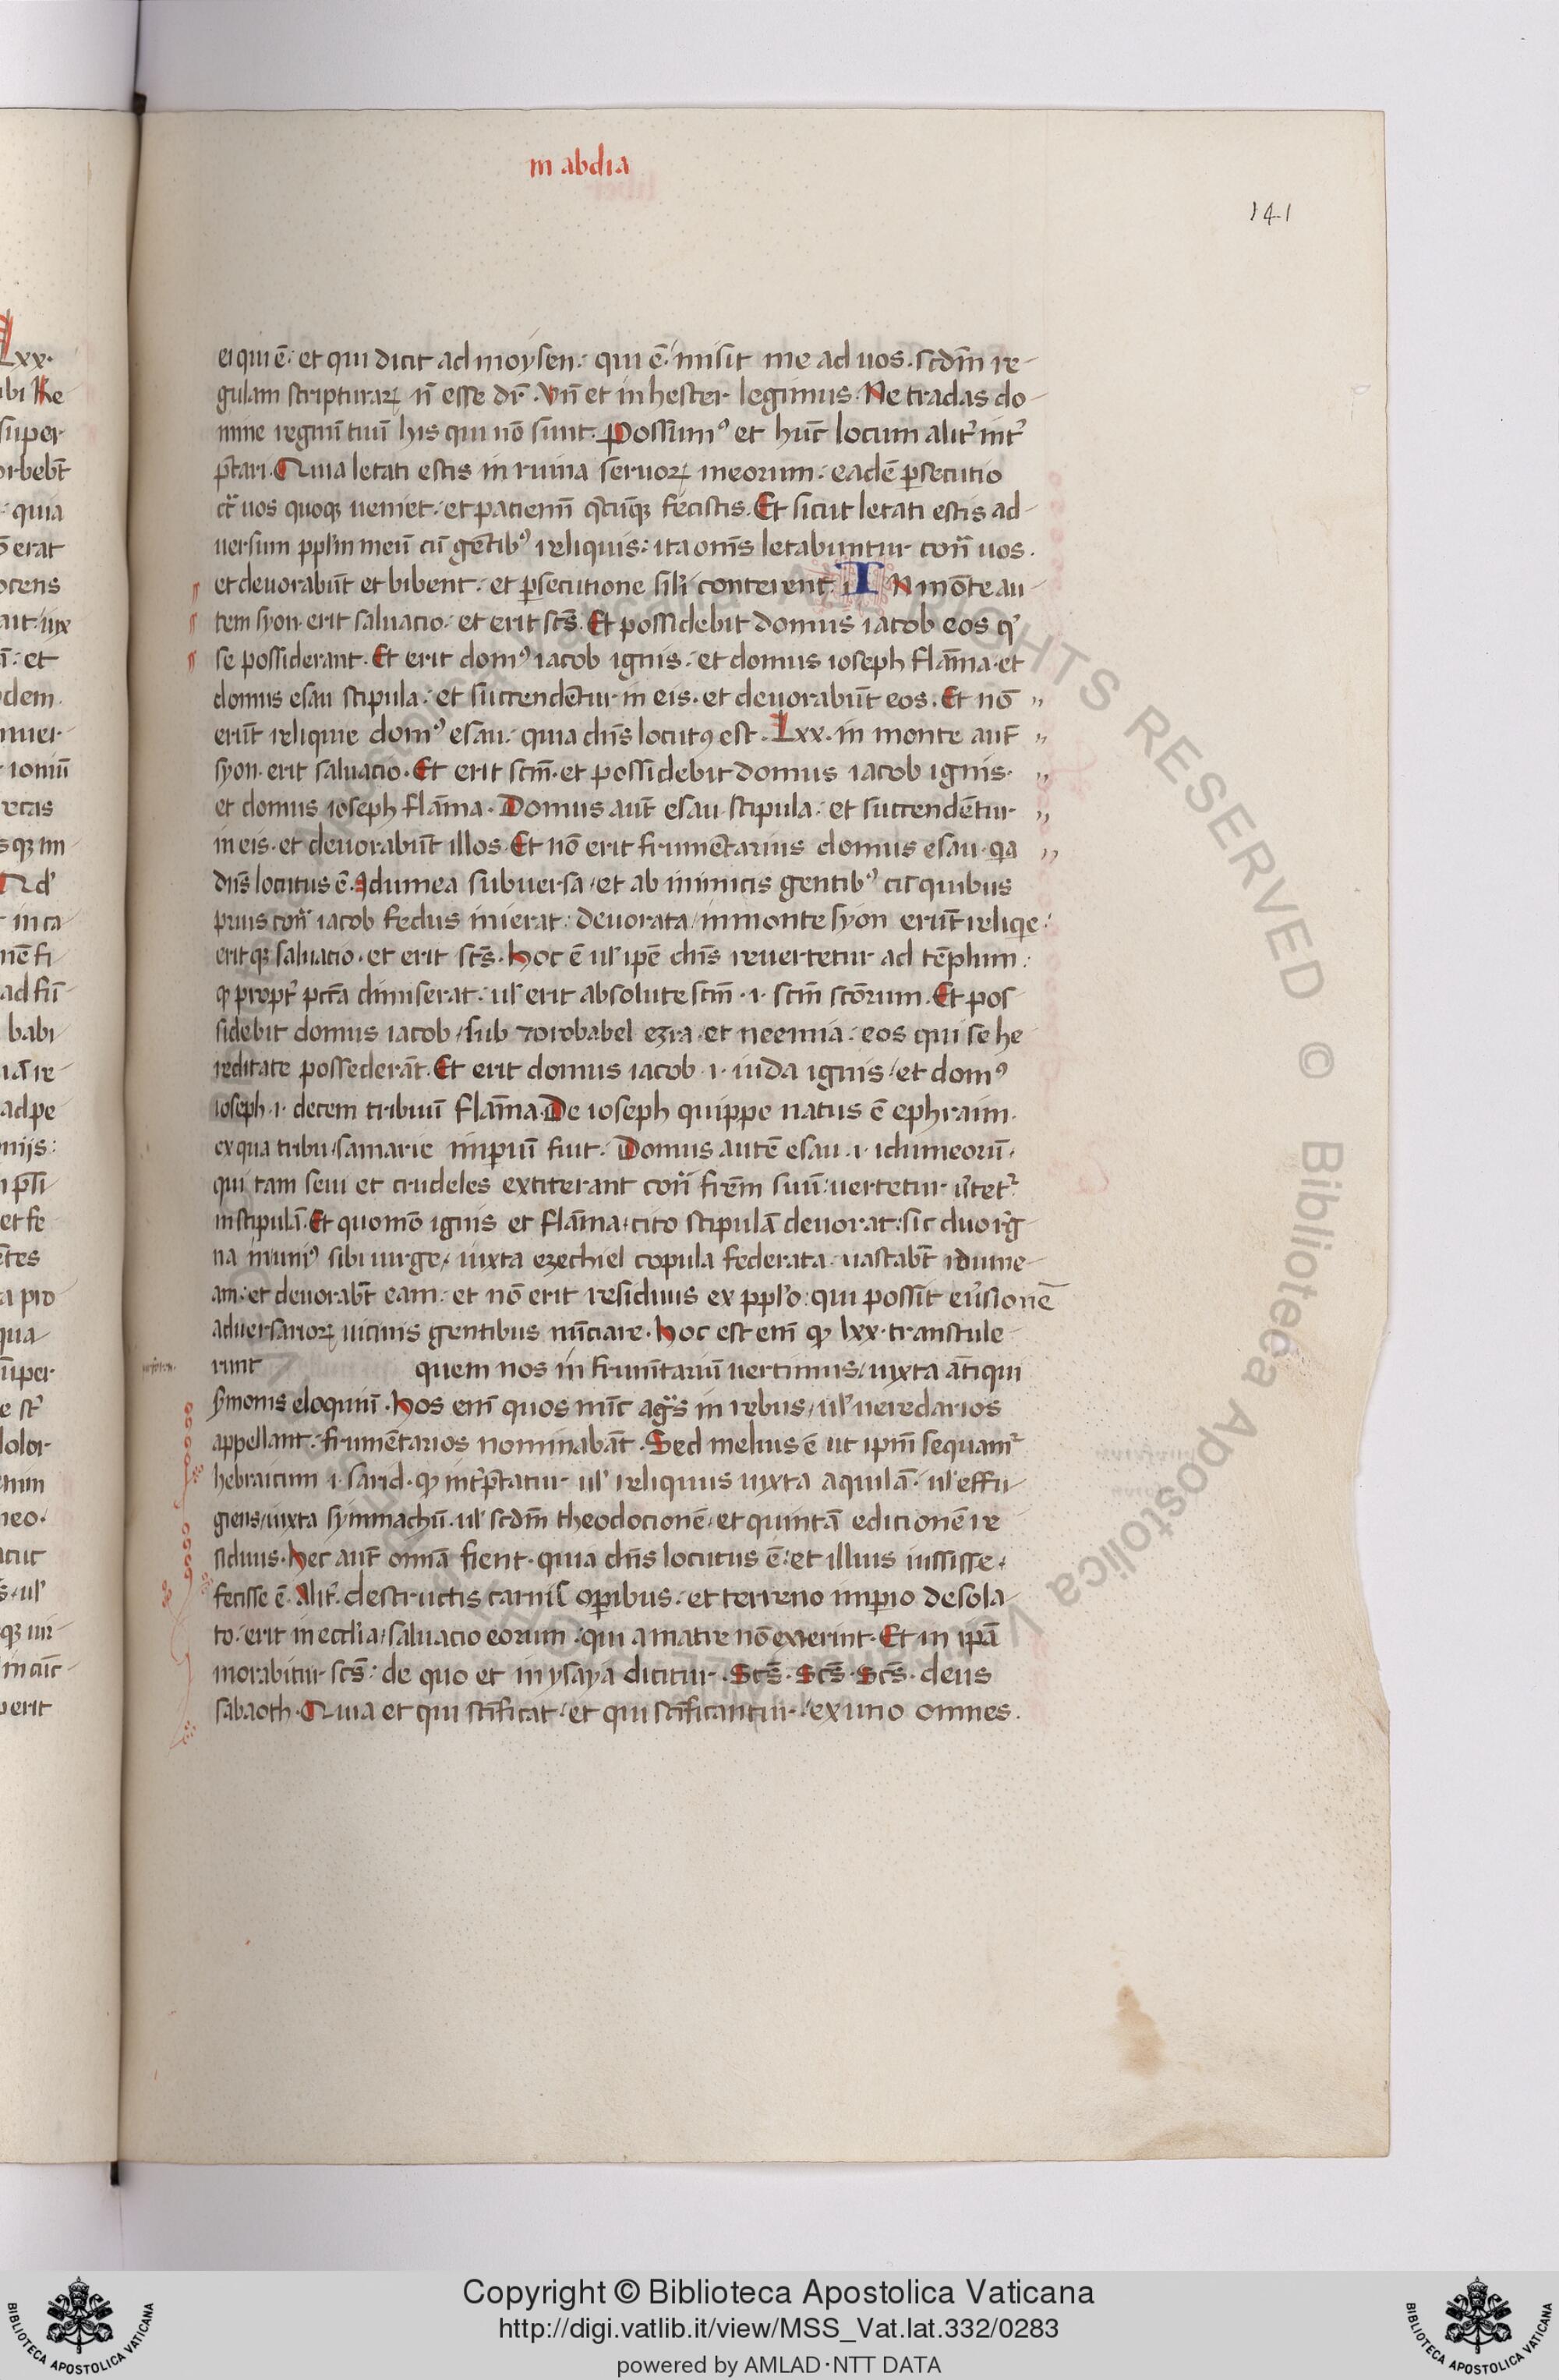 in abdia
141
ei qui ē: et qui dicit ad moysen: qui ē misit me ad uos. scdm̄ re-
gulam scripturaꝝ n̄ esse dr̄. Vn̄ et in hester legimus. Ne tradas do-
mine regnū tuū his qui nō sunt. Possumꝰ et hūc locum alit͛ int͛
p̄tari. Quia letati estis in ruina seruoꝝ meorum: eadē ꝑsecutio
cr̄ uos quoqꝫ ueniet: et patiemī fecistis. Et sicut letati estis ad-
uersum pplm̄ meū cū gētibꝰ reliquis: ita om̄s letabuntur con̄ uos.
et deuorabūt et bibent: et ꝑsecutione sili conterent. IN mōte au-
tem syon erit saluacio: et erit scs̄. Et possidebit domus iacob eos q͛
se possiderant. Et erit domꝰ iacob ignis: et domus ioseph flāma et
domus esau stipula: et succendētur in eis. et deuorabūt eos. Et nō
erūt reliquie domꝰ esau: quia dn̄s locutꝰ est. Lxx. in monte aut̄
syon erit saluacio. Et erit scm̄. et possidebit domus iacob ignis.
et domus ioseph flāma. Domus aut̄ esau stipula: et succendētur
in eis. et deuorabūt illos. Et nō erit frumētarius domus esau. qa
dn̄s locutus ē. Idumea subuersa et ab inimicis gentibꝰ cū quibus
prius con̄ iacob fedus inierat: deuorata in monte syon erūt reliqe:
eritqꝫ saluacio. et erit scs̄. Hoc ē ul̓ ipē dn̄s reuertetur ad tēplum:
qꝫ propt͛ pctā dimiserat: ul̓ erit absolute scm̄ .i. scm̄ scōrum. Et pos
sidebit domus iacob sub zorobabel ezra et neemia: eos qui se he
reditate possederāt. Et erit domus iacob .i. iuda ignis et domꝰ
ioseph .i. decem tribuū flāma. De ioseph quippe natus ē ephraim.
ex qua tribu samarie imꝑiū fuit. Domus autē esau .i. idumeorū
qui tam seui et crudeles extiterant con̄ frēm suū: uertetur
in stipulā. Et quomō ignis et flāma cito stipulā deuorat: sic duo rḡ
na sibi iuxta ezechiel copula federata uastabt̄ idume-
am: et deuorabt̄ eam: et nō erit residuus ex pplo: qui possit eu͛sionē
aduersarioꝝ uicinis gentibus nūciare. Hoc est enī qꝫ lxx. transtule-
runt quem nos in frumētariū uertimus iuxta ātiqui
s̄monis eloquiū. Hos enī quos nūc in rebus ul̓ ueredarios
appellant: frumētarios nominabāt. Sed melius ē ut ipm̄ sequam͛
hebraicum .i. sarid. qꝫ int͛p̄tatur ul̓ reliquus iuxta aquilā. ul̓ effu-
giens iuxta symmachū. ul̓ scdm̄ theodocionē et quintā edicionē re
siduus. Hec aut̄ omīa fient. quia dn̄s locutus ē: et illius iussisse
fecisse ē. Alit͛. destructis carnis oꝑibus: et terreno imꝑio desola-
to: erit in ecclīa saluacio eorum: qui a matre nō exierint. Et in ipā
morabitur scs̄: de quo et in ysaya dicitur. Scs̄. Scs̄. Scs̄. deus
sabaoth. Quia et qui scīficat et qui scīficantur: ex uno omnes.
Copyright © Biblioteca Apostolica Vaticana
http://digi.vatlib.it/view/MSS_Vat.lat.332/0283
powered by AMLAD·NTT DATA